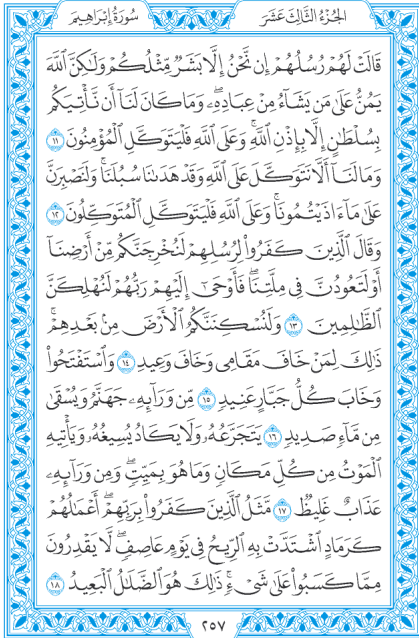 الجُزْءُ الثَّالِثَ عَشَرَ
سُورَةُ إِبْرَاهِيمَ
قَالَتْ لَهُمْ رُسُلُهُمْ إِن نَّحْنُ إِلَّا بَشَرٌ مِّثْلُكُمْ وَلَٰكِنَّ ٱللَّهَ
يَمُنُّ عَلَىٰ مَن يَشَآءُ مِنْ عِبَادِهِۦۖ وَمَا كَانَ لَنَآ أَن نَّأْتِيَكُم
بِسُلْطَٰنٍ إِلَّا بِإِذْنِ ٱللَّهِۚ وَعَلَى ٱللَّهِ فَلْيَتَوَكَّلِ ٱلْمُؤْمِنُونَ ١١
وَمَا لَنَآ أَلَّا نَتَوَكَّلَ عَلَى ٱللَّهِ وَقَدْ هَدَىٰنَا سُبُلَنَاۚ وَلَنَصْبِرَنَّ
عَلَىٰ مَآ ءَاذَيْتُمُونَاۚ وَعَلَى ٱللَّهِ فَلْيَتَوَكَّلِ ٱلْمُتَوَكِّلُونَ ١٢
وَقَالَ ٱلَّذِينَ كَفَرُوا۟ لِرُسُلِهِمْ لَنُخْرِجَنَّكُم مِّنْ أَرْضِنَآ
أَوْ لَتَعُودُنَّ فِى مِلَّتِنَاۖ فَأَوْحَىٰٓ إِلَيْهِمْ رَبُّهُمْ لَنُهْلِكَنَّ
ٱلظَّٰلِمِينَ ١٣ وَلَنُسْكِنَنَّكُمُ ٱلْأَرْضَ مِنۢ بَعْدِهِمْۚ
ذَٰلِكَ لِمَنْ خَافَ مَقَامِى وَخَافَ وَعِيدِ ١٤ وَٱسْتَفْتَحُوا۟
وَخَابَ كُلُّ جَبَّارٍ عَنِيدٍ ١٥ مِّن وَرَآئِهِۦ جَهَنَّمُ وَيُسْقَىٰ
مِن مَّآءٍ صَدِيدٍ ١٦ يَتَجَرَّعُهُۥ وَلَا يَكَادُ يُسِيغُهُۥ وَيَأْتِيهِ
ٱلْمَوْتُ مِن كُلِّ مَكَانٍ وَمَا هُوَ بِمَيِّتٍۖ وَمِن وَرَآئِهِۦ
عَذَابٌ غَلِيظٌ ١٧ مَّثَلُ ٱلَّذِينَ كَفَرُوا۟ بِرَبِّهِمْۖ أَعْمَٰلُهُمْ
كَرَمَادٍ ٱشْتَدَّتْ بِهِ ٱلرِّيحُ فِى يَوْمٍ عَاصِفٍۖ لَّا يَقْدِرُونَ
مِمَّا كَسَبُوا۟ عَلَىٰ شَىْءٍۚ ذَٰلِكَ هُوَ ٱلضَّلَٰلُ ٱلْبَعِيدُ ١٨
٢٥٧